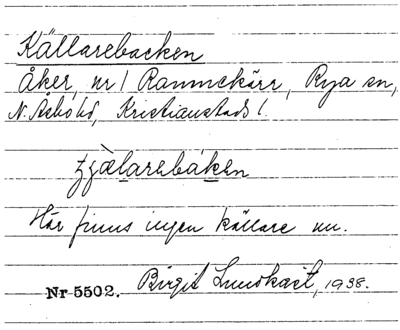 Källarebacken
Åker, nr 1 Rammekärr, Rya sn,
N. Åsbo hd, Kristianstads l.
Här finns ingen källare nu.
Nr 5502. Birgit Lundkvist, 1938.